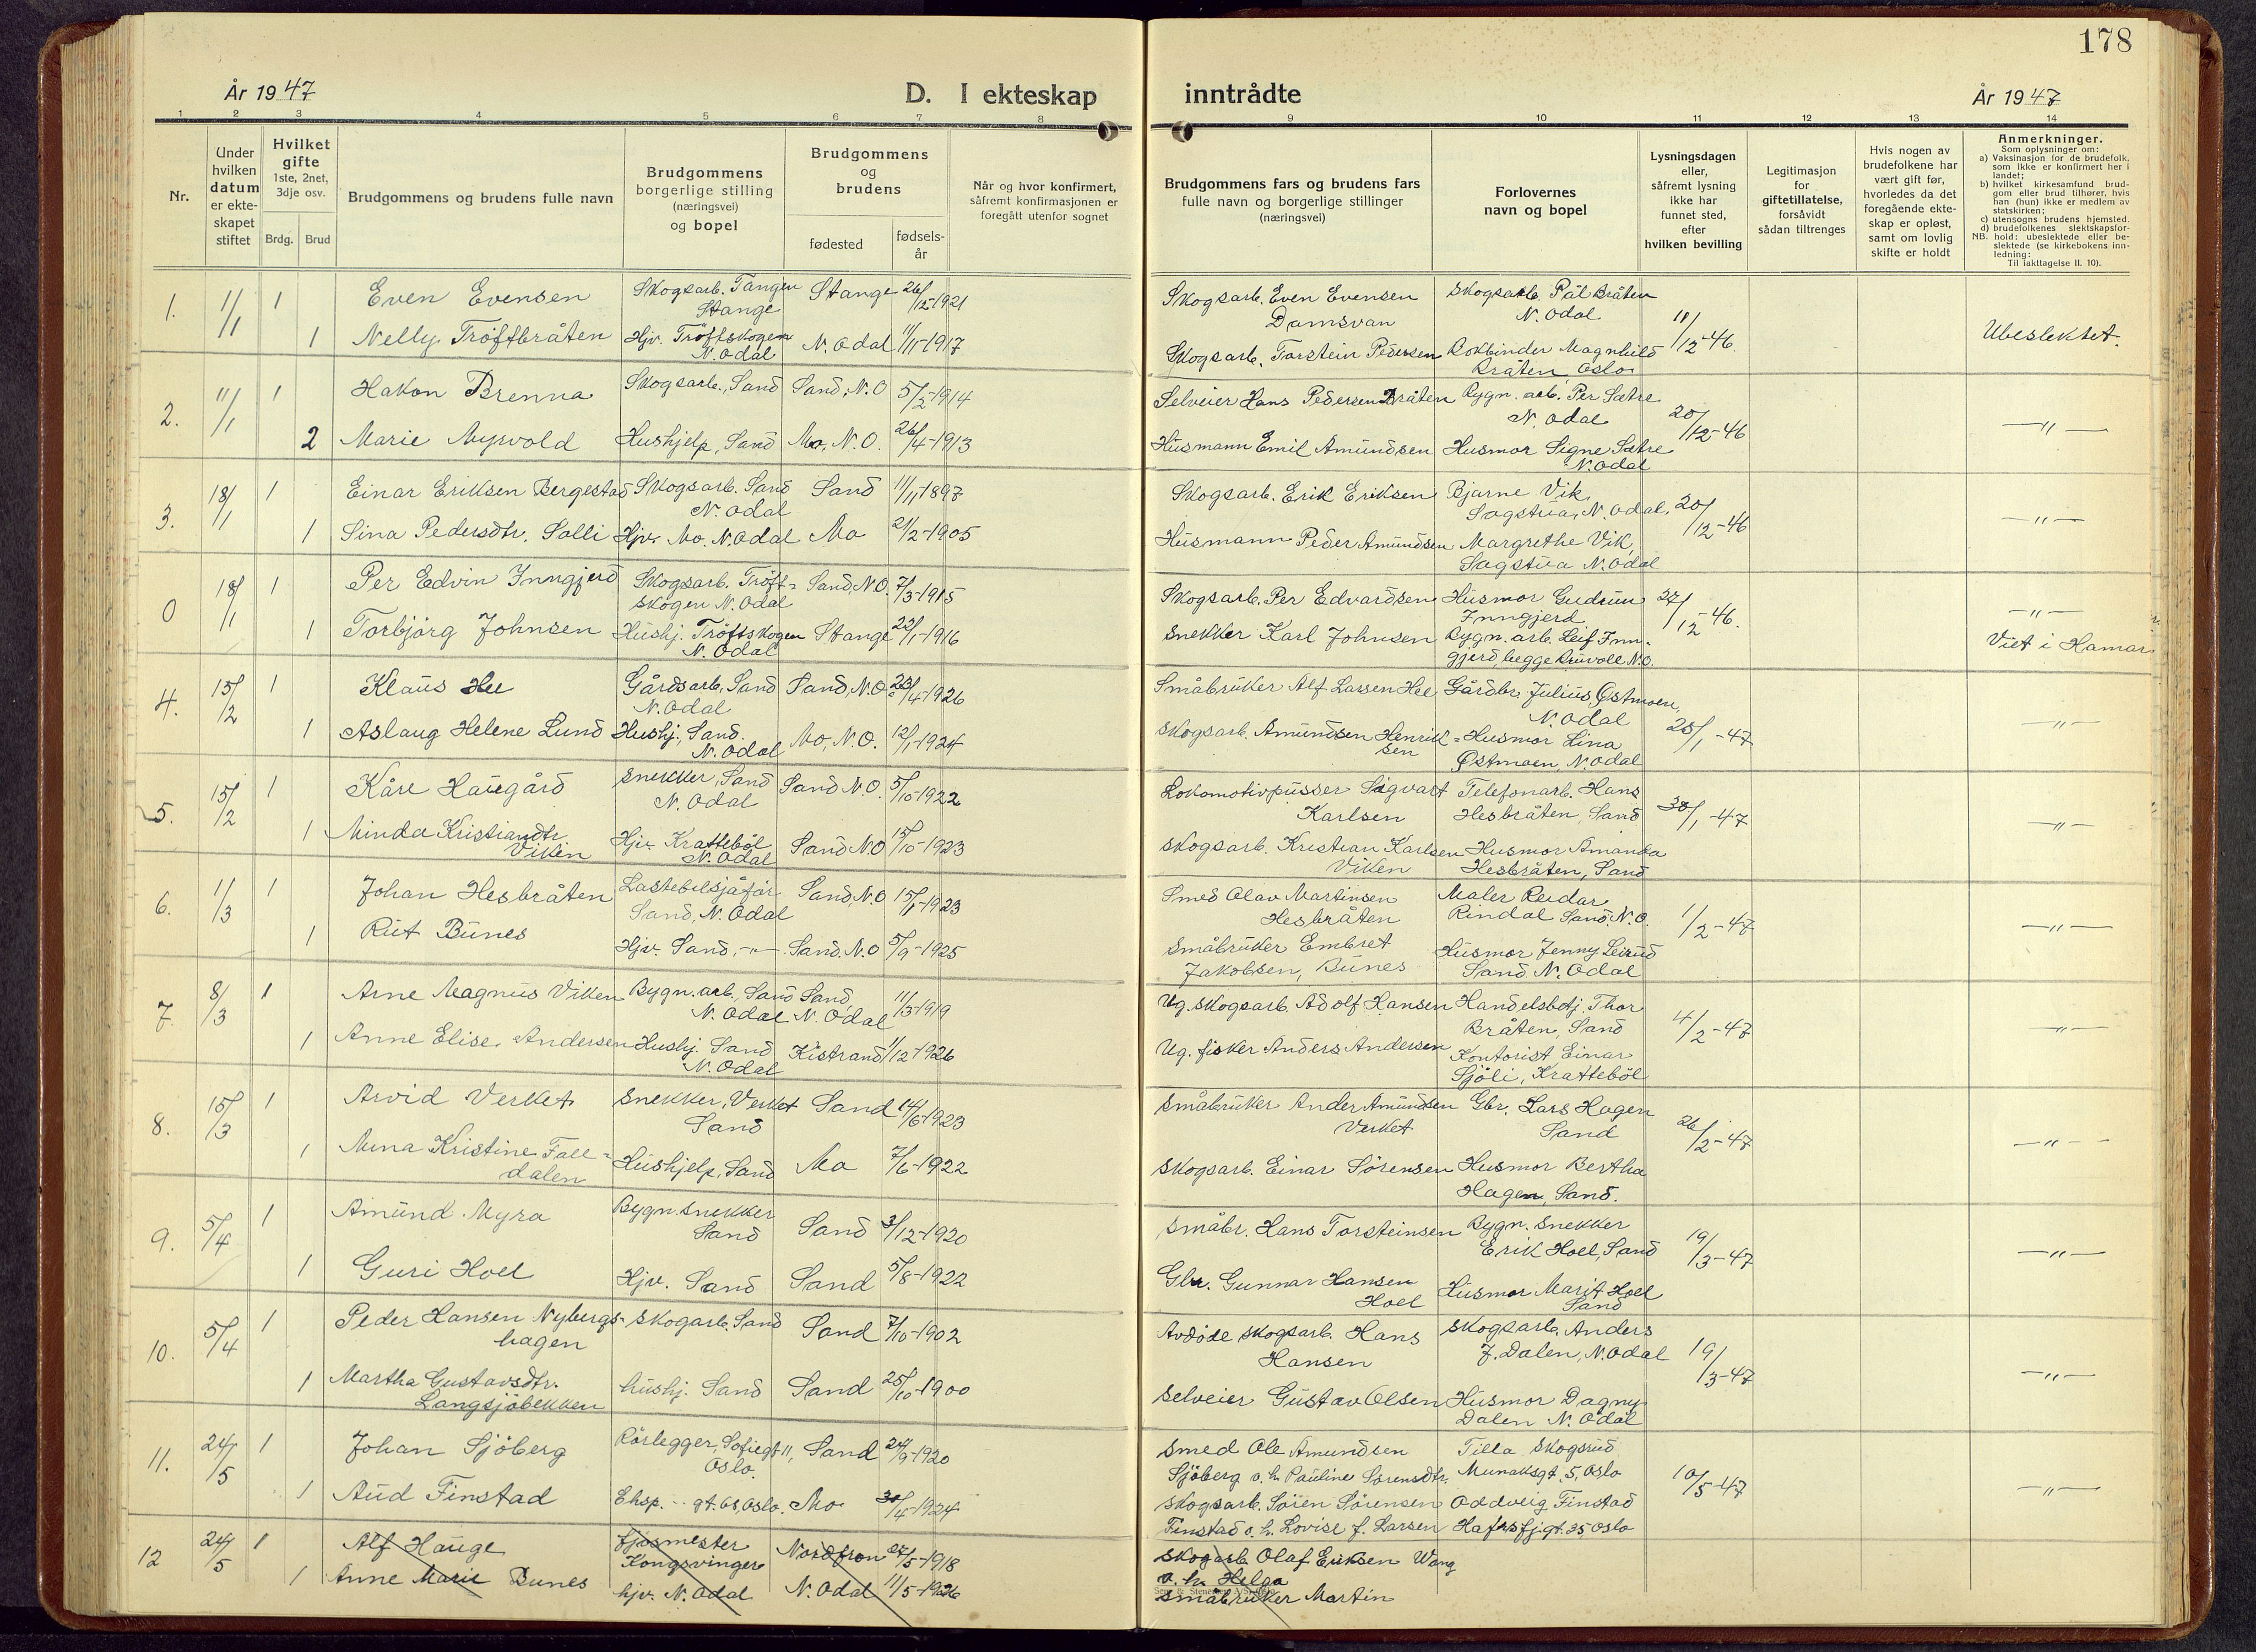 178
År 1947
D. I ekteskap
inntrådte
År 1947
1 2 3 4 5 6 7 8 9 10 11 12 13 14
Nr.
Under
hvilken
datum
er ekte-
skapet
stiftet
Hvilket
gifte
1ste, 2net,
3dje osv.
Brdg.
Brud
Brudgommens og brudens fulle navn
Brudgommens
borgerlige stilling
(næringsvei)
og bopel
Brudgommens
og
brudens
fødested
fødsels-
år
Når og hvor konfirmert,
såfremt konfirmasjonen er
foregått utenfor sognet
Brudgommens fars og brudens fars
fulle navn og borgerlige stillinger
(næringsvei)
Forlovernes
navn og bopel
Lysningsdagen
eller,
såfremt lysning
ikke har
funnet sted,
efter
hvilken bevilling
Legitimasjon
for
giftetillatelse,
forsåvidt
sådan tiltrenges
Hvis nogen av
brudefolkene har
vært gift før,
hvorledes da det
foregående ekte-
skap er opløst,
samt om lovlig
skifte er holdt
Anmerkninger.
Som oplysninger om:
a) Vaksinasjon for de brudefolk,
som ikke er konfirmert her i
landet;
b) hvilket kirkesamfund brud-
gom eller brud tilhører, hvis
han (hun) ikke er medlem av
statskirken;
c) utensogns brudens hjemsted.
d) brudefolkenes slektskapsfor-
NB. hold: ubeslektede eller be-
slektede (se kirkebokens inn-
ledning:
Til iakttagelse II. 10).
1.
11/1
1
Even Evensen
Skogsarb. Tangen
Stange
Stange
26/12-1921
1
Nelly Tröftbråten
Hjv. Tröftskogen
N. Odal
N. Odal
11/11-1917
Skogsarb. Even Evensen
Damsvan
Skogsarb. Torstein Pedersen
Skogsarb. Pål Bråten
N. Odal
Bokbinder Magnhild
Bråten Oslo
11/12-46.
Ubeslektet.
2.
11/1
1
Hakon Brenna
Skogsarb., Sand
Sand, N.O
5/2-1914
2
Marie Myrvold
Hushjelp, Sand
Mo, N.O.
26/4-1913
Selveier Hans Pedersen Bråten
Husmann Emil Amundsen
Bygn. arb. Per Sætre
N. Odal
Husmor Signe Sætre
N. Odal
20/12-46
—"—
3.
18/1
1
Einar Eriksen Bergestad
Skogsarb. Sand
N. Odal
Sand
11/11-1897
1
Sina Pedersdtr. Solli
Hjv. Mo. N. Odal
Mo
21/2-1905
Skogsarb. Erik Eriksen
Husmann Peder Amundsen
Bjarne Vik,
Sagstua, N. Odal.
Margrethe Vik,
Sagstua N. Odal
20/12-46
—"—
0
18/1
1
Per Edvin Inngjerd
Skogsarb. Tröft-
skogen N. Odal
Sand, N.O.
7/3-1915
1
Torbjörg Johnsen
Hushj. Tröftskogen
N. Odal
Stange
22/1-1916
Skogsarb. Per Edvardsen
Snekker Karl Johnsen
Husmor Gudrun
Inngjerd
Bygn. arb. Leif Inn-
gjerd, begge Bruvoll N.O.
27/12-46.
—"—
Viet i Hamar
4.
15/2
1
Klaus Hee
Gårdsarb., Sand
N. Odal
Sand, N.O
23/4-1926
1
Aslaug Helene Lund
Hushj., Sand.
N. Odal
Mo, N.O.
12/1-1924
Småbruker Alf Larsen Hee
Skogsarb. Amundsen Henrik-
sen
Gårdbr. Julius Østmoen,
N. Odal
Husmor Lina
Østmoen, N. Odal
25/1-47
—"—
5.
15/2
1
Kåre Haugård
Snekker, Sand
N. Odal
Sand N.O.
5/10-1922
1
Minda Kristiandtr.
Viken
Hjv. Kratteböl
N. Odal
Sand N.O
15/10-1923
Lokomotivpusser Sigvart
Karlsen
Skogsarb. Kristian Karlsen
Viken
Telefonarb. Hans
Hesbråten, Sand
Husmor Amanda
Hesbråten, Sand
30/1-47
—"—
6.
1/3
1
Johan Hesbråten
Lastebilsjåför
Sand, N. Odal
Sand, N.O
15/1-1923
1
Rut Bunes
Hjv. Sand, —"—
Sand. N.O
5/9-1925
Smed Olav Martinsen
Hesbråten
Småbruker Embret
Jakobsen, Bunes
Maler Reidar
Rindal Sand. N.O.
Husmor Jenny Leirud
Sand N. Odal
1/2-47
—"—
7.
8/3
1
Arne Magnus Viken
Bygn. arb., Sand
N. Odal
Sand,
N. Odal
11/3-1919
1
Anne Elise Andersen
Hushj. Sand
N. Odal
Kistrand
11/12-1926
Ug. skogsarb. Adolf Hansen
Ug. fisker Anders Andersen
Handelsbetj. Thor
Bråten, Sand
Kontorist Einar
Sjöli, Kratteböl
4/2-47
—"—
8.
15/3
1
Arvid Verket
Snekker, Verket
Sand
Sand
14/6-1923
1
Nuna Kristine Fall-
dalen
Hushjelp, Sand
Mo
7/6-1922
Småbruker Ander Amundsen
Verket
Skogsarb. Einar Sörensen
Gbr. Lars Hagen
Sand
Husmor Bertha
Hagen, Sand.
26/2-47
—"—
9.
5/4
1
Amund Myra
Bygn. snekker
Sand
Sand
3/12-1920
1
Guri Hoel
Hjv. Sand
Sand
5/8-1922
Småbr. Hans Torsteinsen
Gbr. Gunnar Hansen
Hoel
Bygn. snekker
Erik Hoel, Sand
Husmor Marit Hoel
Sand
19/3-47
—"—
10.
5/4
1
Peder Hansen Nybergs-
hagen
Skogarb. Sand
Sand
7/10-1902
1
Martha Gustavsdtr.
Langsjöbekken
hushj. Sand
Sand
25/10-1900
Avdöde skogsarb. Hans
Hansen
Selveier Gustav Olsen
Skogsarb. Anders
J. Dalen, N. Odal
Husmor Dagny
Dalen N. Odal
19/3-47
—"—
11.
24/5
1
Johan Sjöberg
Rörlegger, Sofiegt 11,
Oslo.
Sand
24/9-1920
1
Aud Finstad
Eksp. gt. 61, Oslo.
Mo
30/4-1924
Smed Ole Amundsen
Sjöberg o. h. Pauline Sørensdtr.
Skogsarb. Sören Sörensen
Finstad o. h. Lovise f. Larsen
Tilla Skogsrud
Munaksgt. 5, Oslo
Oddveig Finstad
Hafrsfj.gt. 35 Oslo
10/5-47
—"—
12
24/5
1
Alf Hauge
fjøsmester
Kongsvinger
Nordfron
27/5-1918
1
Anne Marie Bunes
hjv. N. Odal
N. Odal
11/5-1926
Skogarb Olaf Eriksen Wang
o. h. Helga
Småbruker Martin